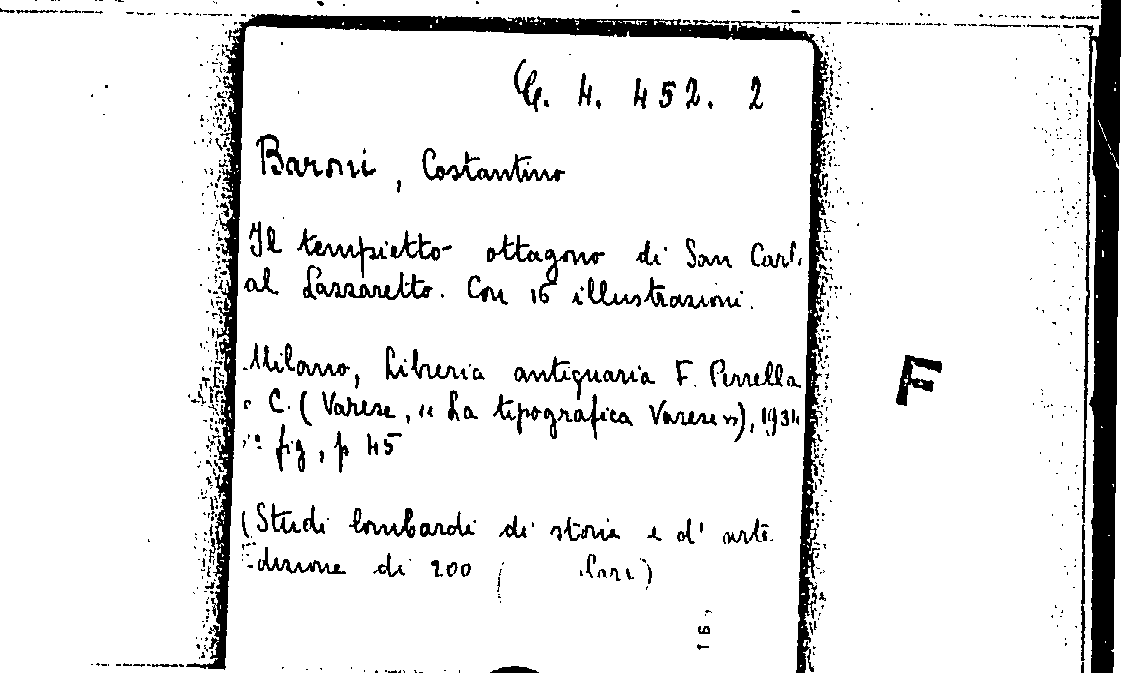 G. 4. 452. 2
Baroni, Costantino
Il tempietto ottagono di San Carl.
al Lazzaretto. Con 16 illustrazioni.
Milano, Libreria antiquaria F. Perrella
C. (Varese, "La tipografica Varese"), 1934
fig, p 45
F
(Studi lombardi di storia e d'arte
Edizione di 200
16.